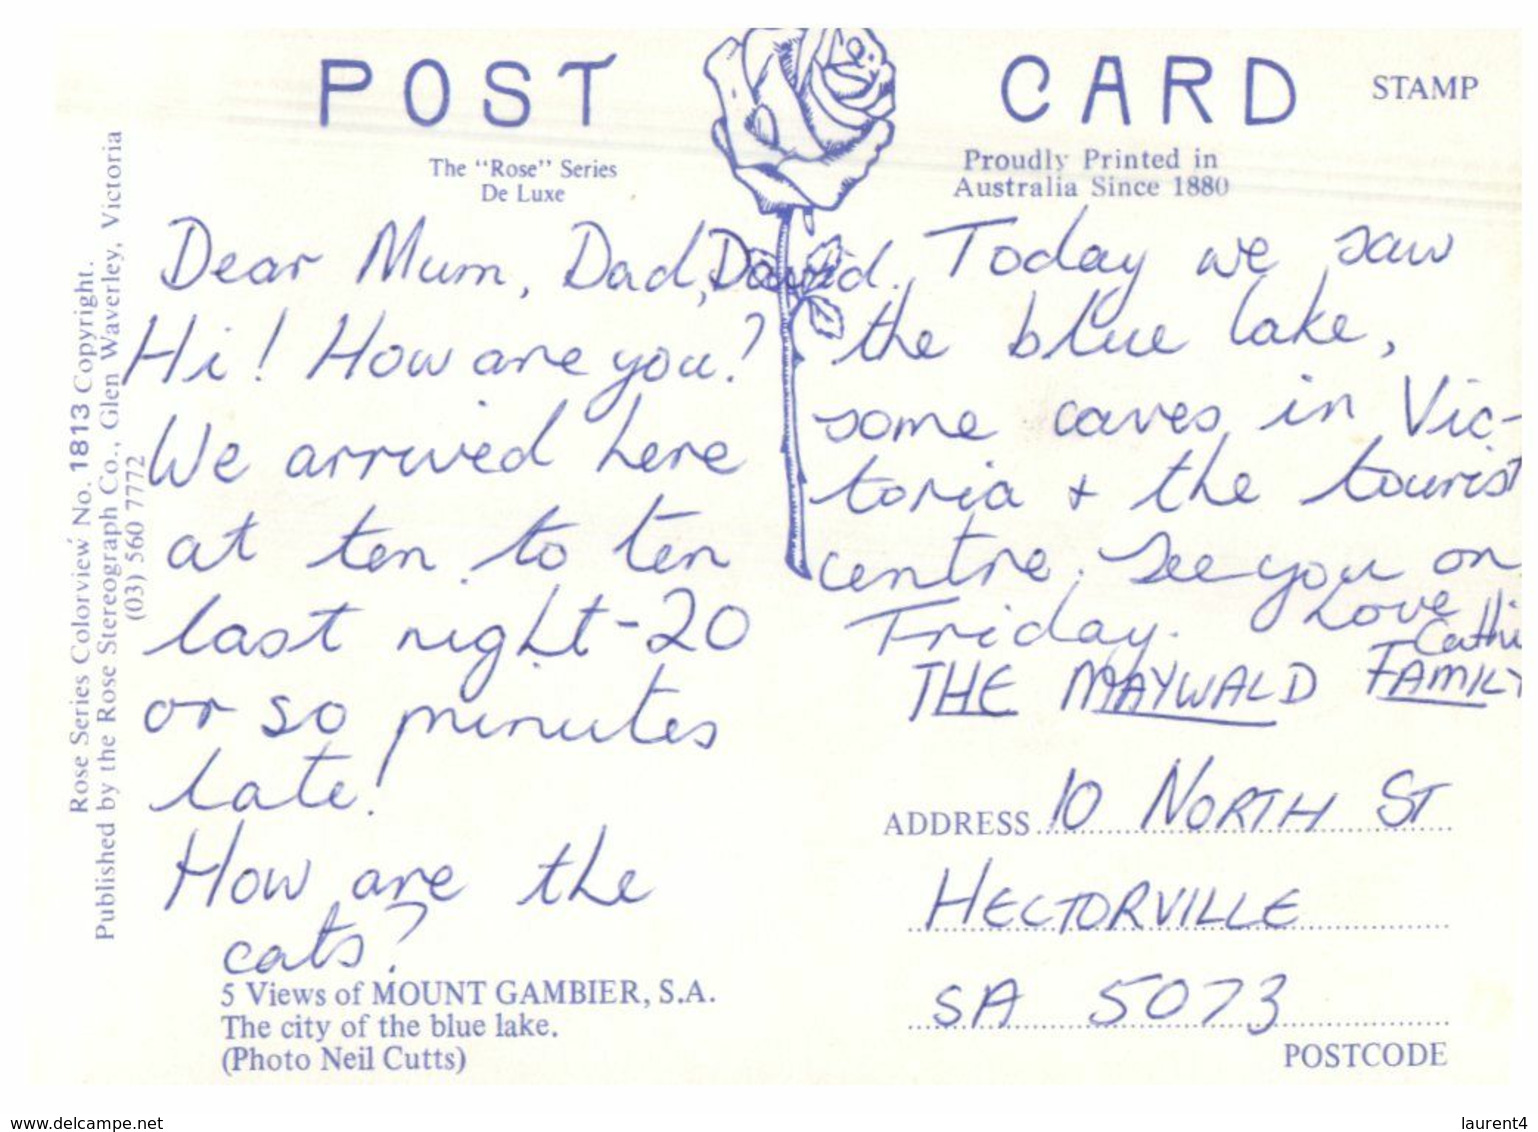 POST CARD
STAMP
The "Rose" Series
De Luxe
Proudly Printed in
Australia Since 1880
Rose Series Colorview No. 1813 Copyright.
Published by the Rose Stereograph Co., Glen Waverley, Victoria
(03) 560 7772
Dear Mum, Dad, David.
Hi! How are you?
We arrived here
at ten to ten
last night-20
or so minutes
late!
How are the
cats?
5 Views of MOUNT GAMBIER, S.A.
The city of the blue lake.
(Photo Neil Cutts)
Today we saw
the blue lake,
some caves in Vic-
toria + the tourist
centre. See you on
Friday. Love
Cathi
THE MAYWALD FAMILY
ADDRESS 10 NORTH ST
HECTORVILLE
SA 5073
POSTCODE
www.delcampe.net
laurent4